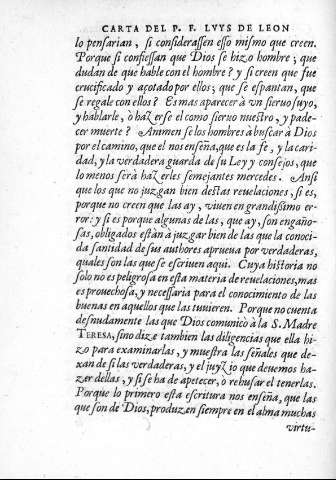 CARTA DEL P. F. LVYS DE LEON
lo pensarian, si considerassen esso mismo que creen.
Porque si confiessan que Dios se hizo hombre; que
dudan de que hable con el hombre? y si creen que fue
crucificado y açotado por ellos; que se espantan, que
se regale con ellos? Es mas aparecer à vn sieruo suyo,
y hablarle, ò hazerse el como sieruo nuestro, y pade-
cer muerte? Animen se los hombres à buscar à Dios
por el camino, que el nos enseña, que es la fe, y la cari-
dad, y la verdadera guarda de su Ley y consejos, que
lo menos serà hazerles semejantes mercedes. Ansi
que los que no juzgan bien destas reuelaciones, si es,
porque no creen que las ay, viuen en grandissimo er-
ror: y si es porque algunas de las, que ay, son engaño-
sas, obligados estàn à juzgar bien de las que la conoci-
da santidad de sus authores aprueua por verdaderas,
quales son las que se escriuen aqui. Cuya historia no
solo no es peligrosa en esta materia de reuelaciones, mas
es prouechosa, y necessaria para el conocimiento de las
buenas en aquellos que las tuuieren. Porque no cuenta
desnudamente las que Dios comunicò à la S. Madre
TERESA, sino dize tambien las diligencias que ella hi-
zo para examinarlas, y muestra las señales que de-
xan de si las verdaderas, y el juyzio que deuemos ha-
zer dellas, y si se ha de apetecer, o rehusar el tenerlas.
Porque lo primero esta escritura nos enseña, que las
que son de Dios, produzen siempre en el alma muchas
virtu-